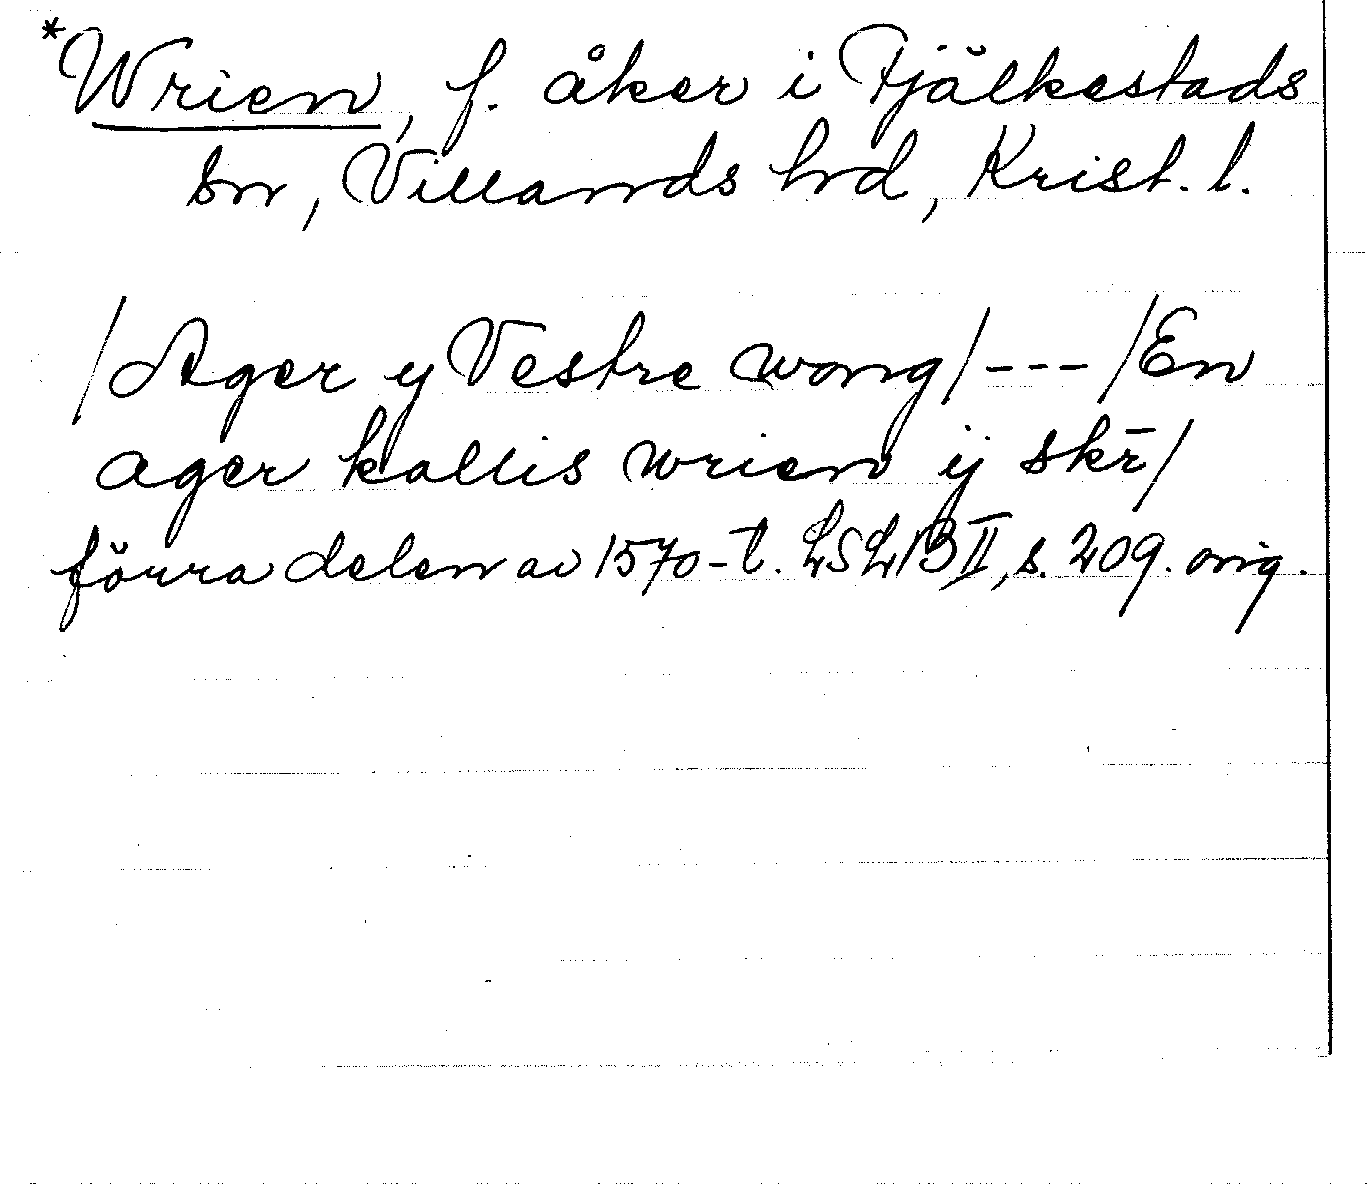 *Wrien, f. åker i Fjälkestads
sn, Villands hrd, Krist. l.
/Ager y Vestre wong/ --- /En
ager kallis wrien ij skr̄/
förra delen av 1570-t. LSLB II, s. 209. orig.